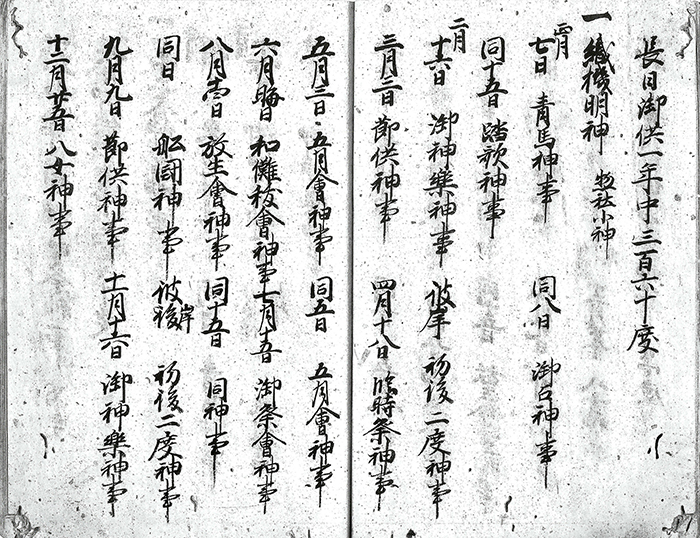 長日御供一年中三百六十度
一織機明神 惣社小神
正月
七日 青馬神事 同八日 御占神事
同十五日踏歌神事
二月
十六日 御神樂神事 彼岸 初後二度神事
三月三日節供神事 四月十八日 臨時祭神事
五月三日・五月會神事 同五日 五月會神事
六月晦日 和儺秡會神事 七月十五日 御祭會神事
八月一日 放生會神事 同十五日 同神事
同日 船闘神事 彼岸 初後二度神事
九月九日 節供神事 十一月十六日 御神樂神事
十二月廿五日 八女神事